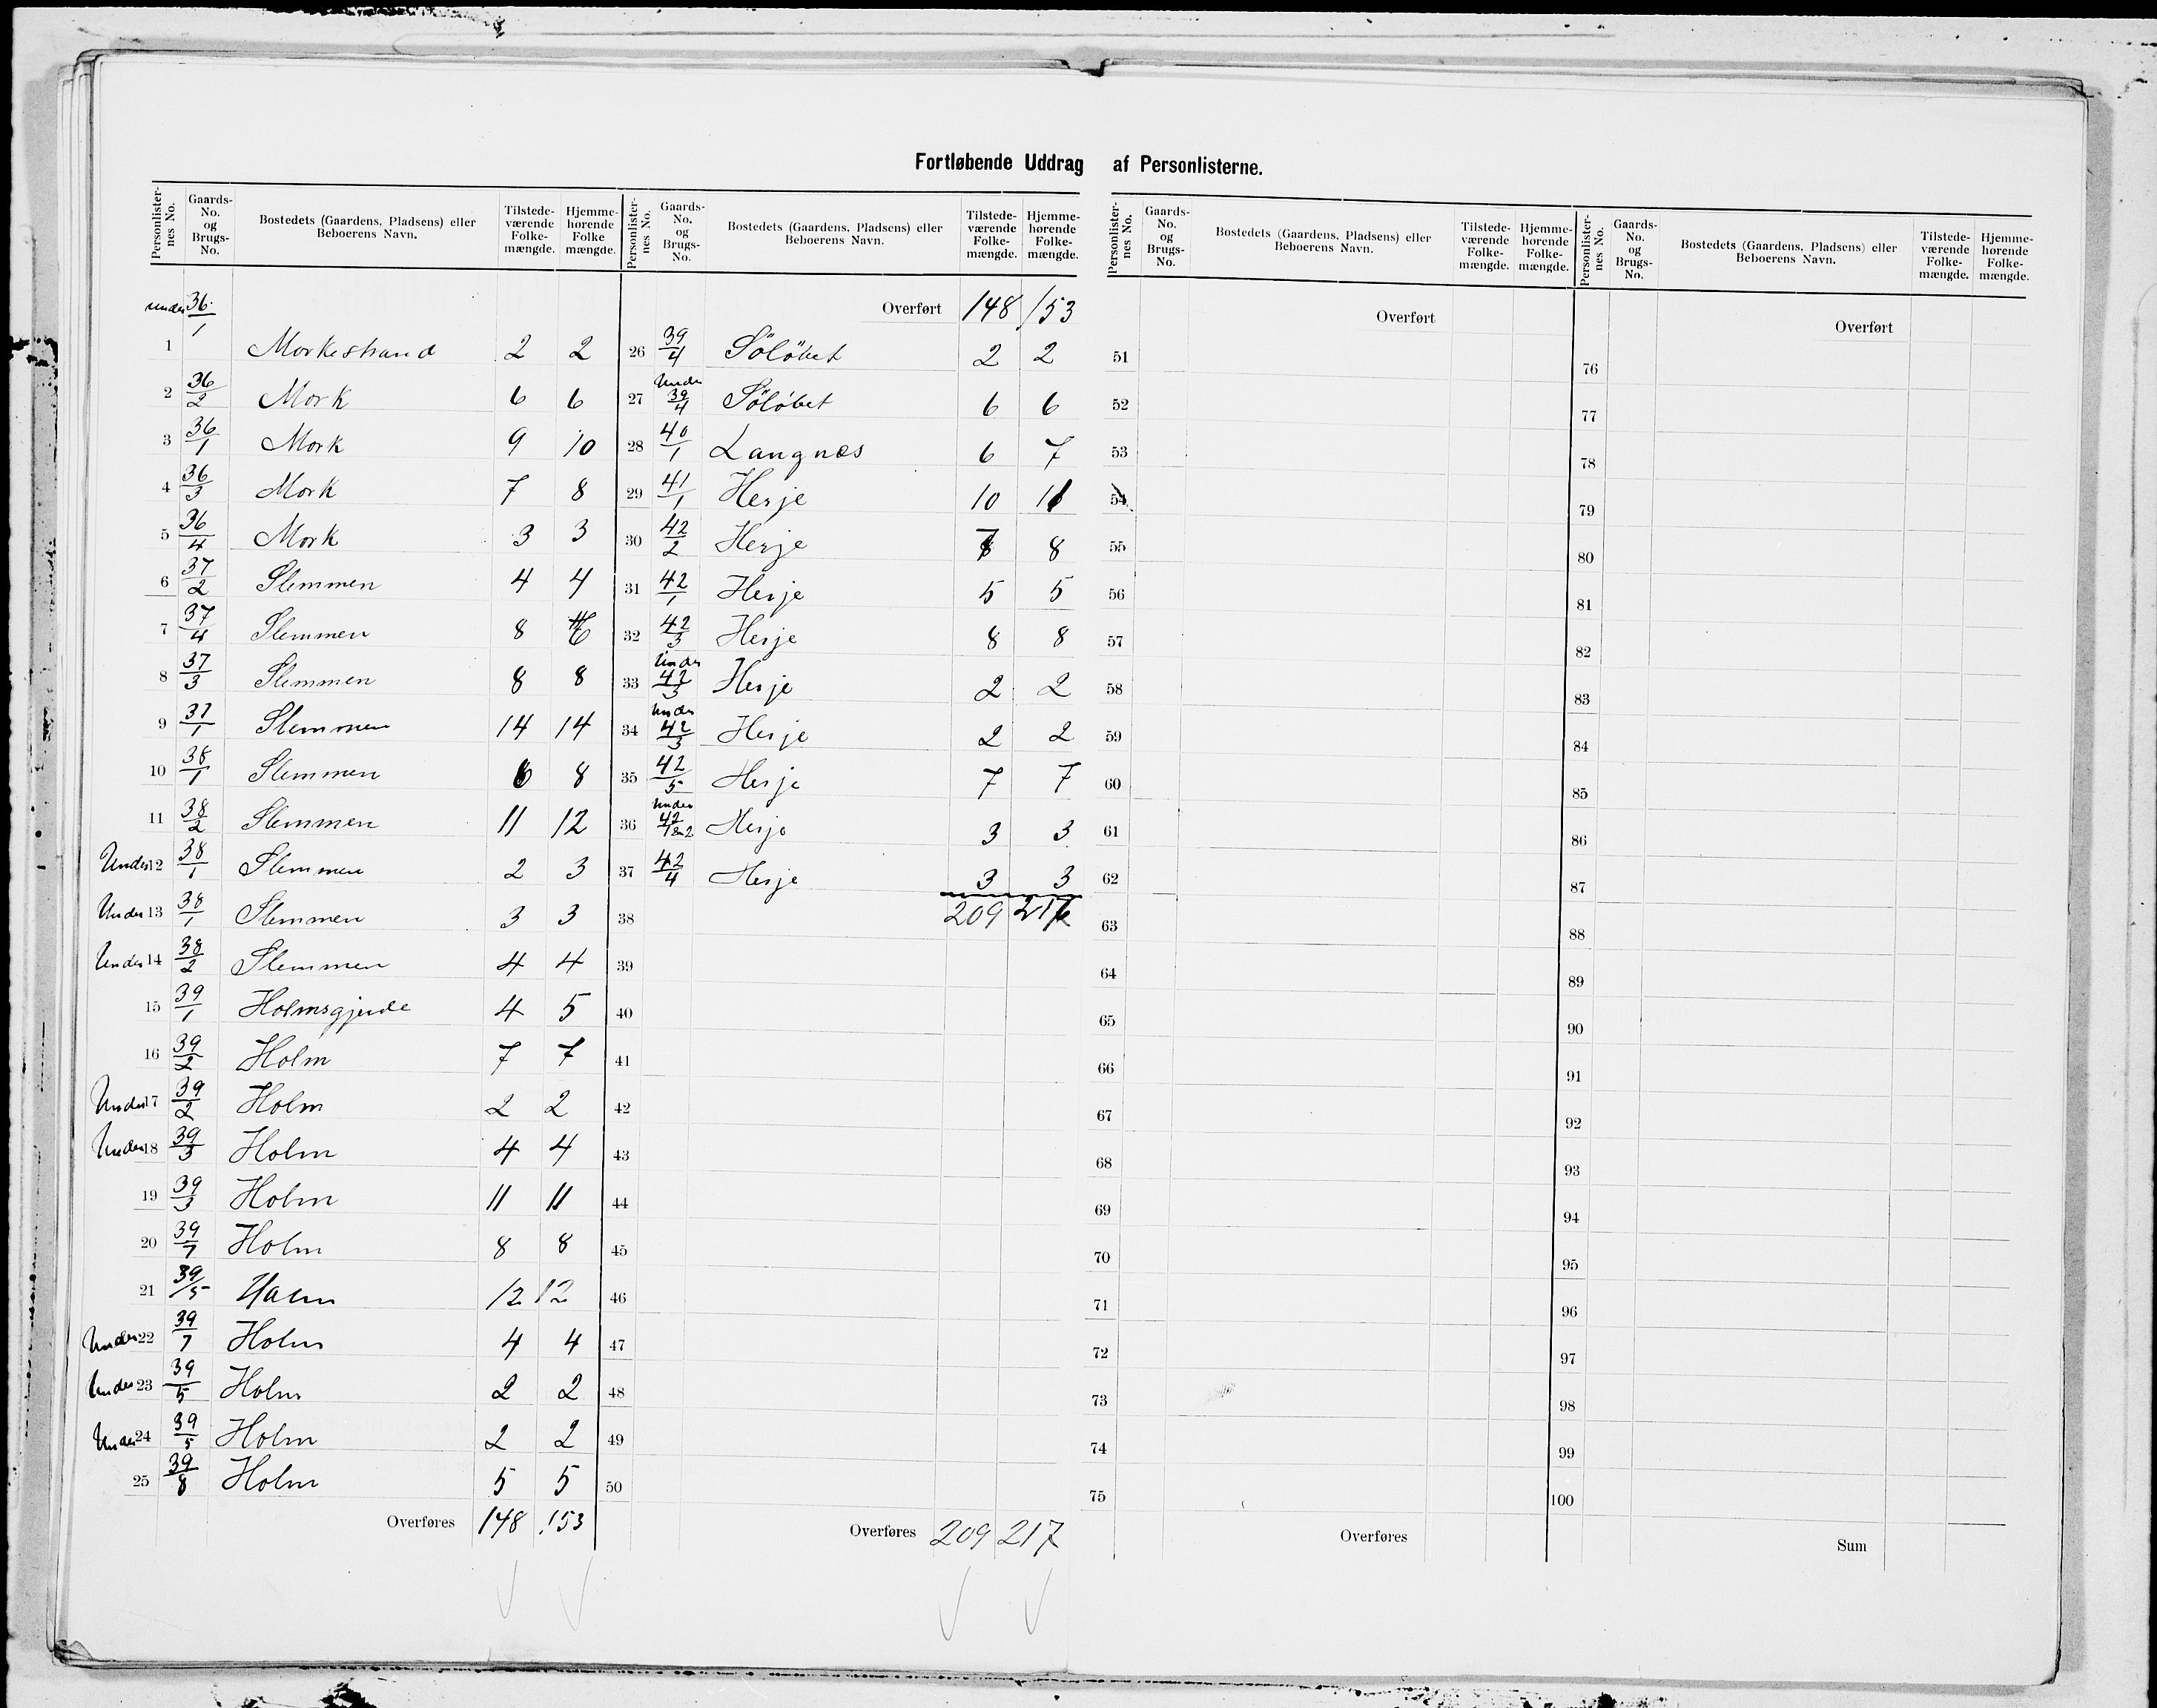 Fortløbende Uddrag af Personlisterne.
Personlister-nes No. Gaards-No. og Brugs-No. Bostedets (Gaardens, Pladsens) eller Beboerens Navn. Tilstede-værende Folke-mængde. Hjemme-hørende Folke mængde.
under 36/1
1 Morkestrand 2 2
2 36/2 Mork 6 6
3 36/1 Mork 9 10
4 36/3 Mork 7 8
5 36/4 Mork 3 3
6 37/2 Slemmen 4 4
7 37/4 Slemmen 8
8 37/3 Slemmen 8 8
9 37/1 Slemmen 14 14
10 38/1 Slemmen 6 8
11 38/2 Slemmen 11 12
Under 12 38/1 Slemmen 2 3
Under 13 38/1 Slemmen 3 3
Under 14 38/2 Slemmen 4 4
15 39/1 Holmsgjerde 4 5
16 39/2 Holm 7 7
Under 17 39/2 Holm 2 2
Under 18 39/3 Holm 4 4
19 39/3 Holm 11 11
20 39/7 Holm 8 8
21 39/5 12 12
Under 22 39/7 Holm 4 4
Under 23 39/5 Holm 2 2
Under 24 39/5 Holm 2 2
25 39/8 Holm 5 5
Overføres 148 153
Personlister-nes No. Gaards-No. og Brugs-No. Bostedets (Gaardens, Pladsens) eller Beboerens Navn. Tilstede-værende Folke-mængde. Hjemme-hørende Folke-mængde.
Overført 148 153
26 39/4 Söløbet 2 2
27 Under 39/4 Söløbet 6 6
28 40/1 Langnæs 6 7
29 41/1 Herje 10 11
30 42/2 Herje 7 8
31 42/1 Herje 5 5
32 42/3 Herje 8 8
33 Under 42/3 Herje 2 2
34 Under 42/3 Herje 2 2
35 42/5 Herje 7 7
36 Under 42/1&2 Herje 3 3
37 42/4 Herje 3 3
38 209 217
39
40
41
42
43
44
45
46
47
48
49
50
Overføres 209 217
Personlister-nes No. Gaards-No. og Brugs-No. Bostedets (Gaardens, Pladsens) eller Beboerens Navn. Tilstede-værende Folke-mængde. Hjemme-hørende Folke-mængde.
Overført
51
52
53
54
55
56
57
58
59
60
61
62
63
64
65
66
67
68
69
70
71
72
73
74
75
Overføres
Personlister-nes No. Gaards-No. og Brugs-No. Bostedets (Gaardens, Pladsens) eller Beboerens Navn. Tilstede-værende Folke-mængde. Hjemme-hørende Folke-mængde.
Overført
76
77
78
79
80
81
82
83
84
85
86
87
88
89
90
91
92
93
94
95
96
97
98
99
100
Sum